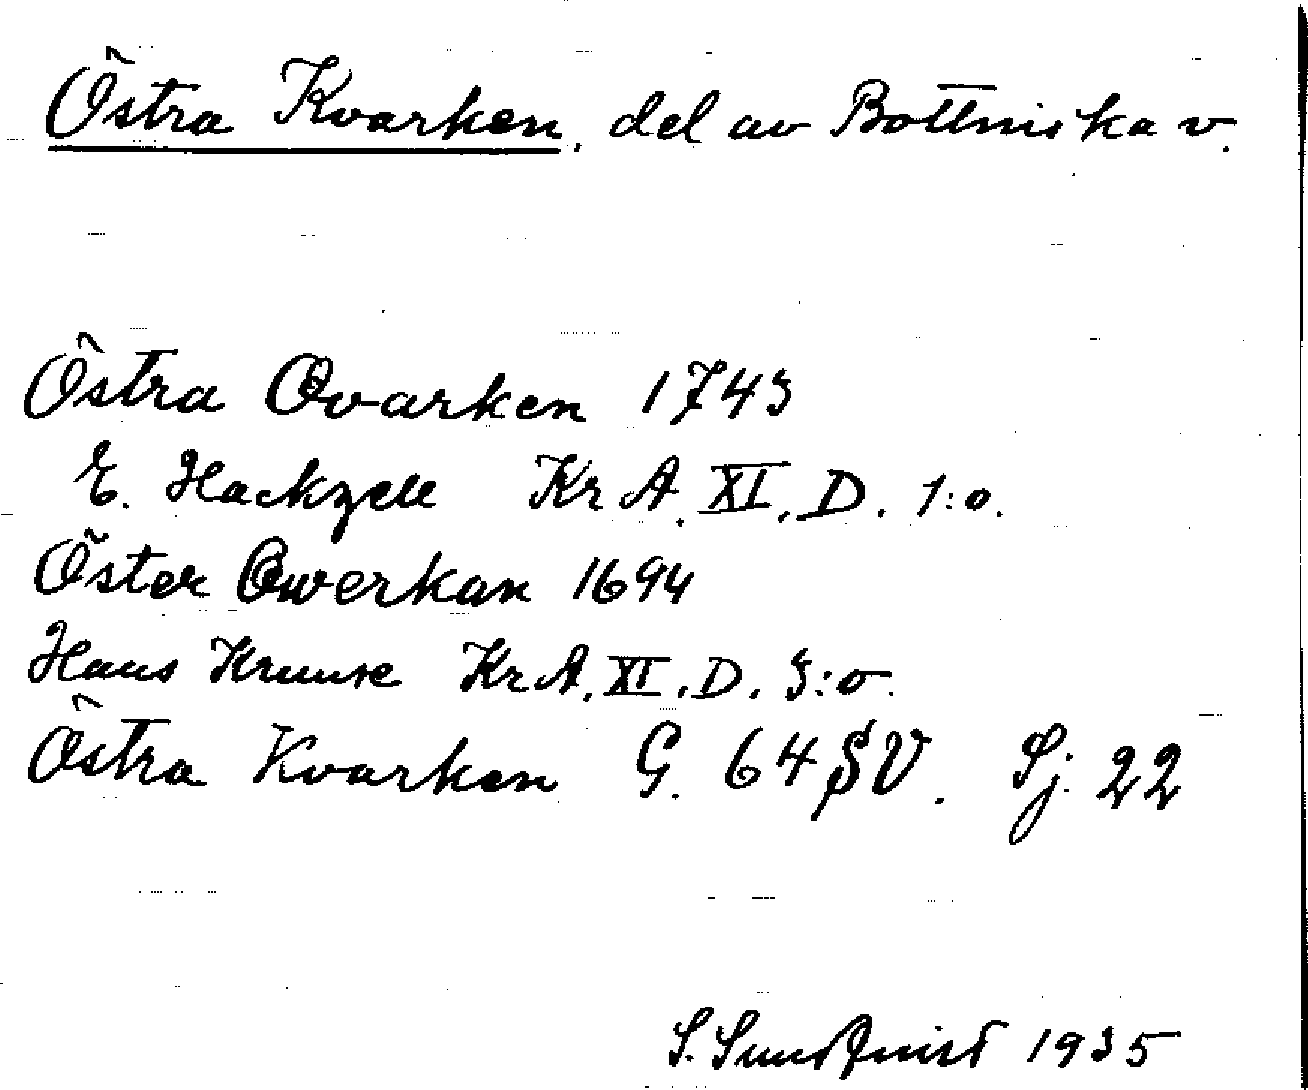 Östra Kvarken, del av Bottniska v.
Östra Qvarken 1743
E. Hackzell Kr A. XI. D. 1:o.
Öster Qwerkan 1694
Hans Kruuse Kr A. XI. D. 3:o.
Östra Kvarken G. 64 SV. Sj. 22
S. Sundquist 1935